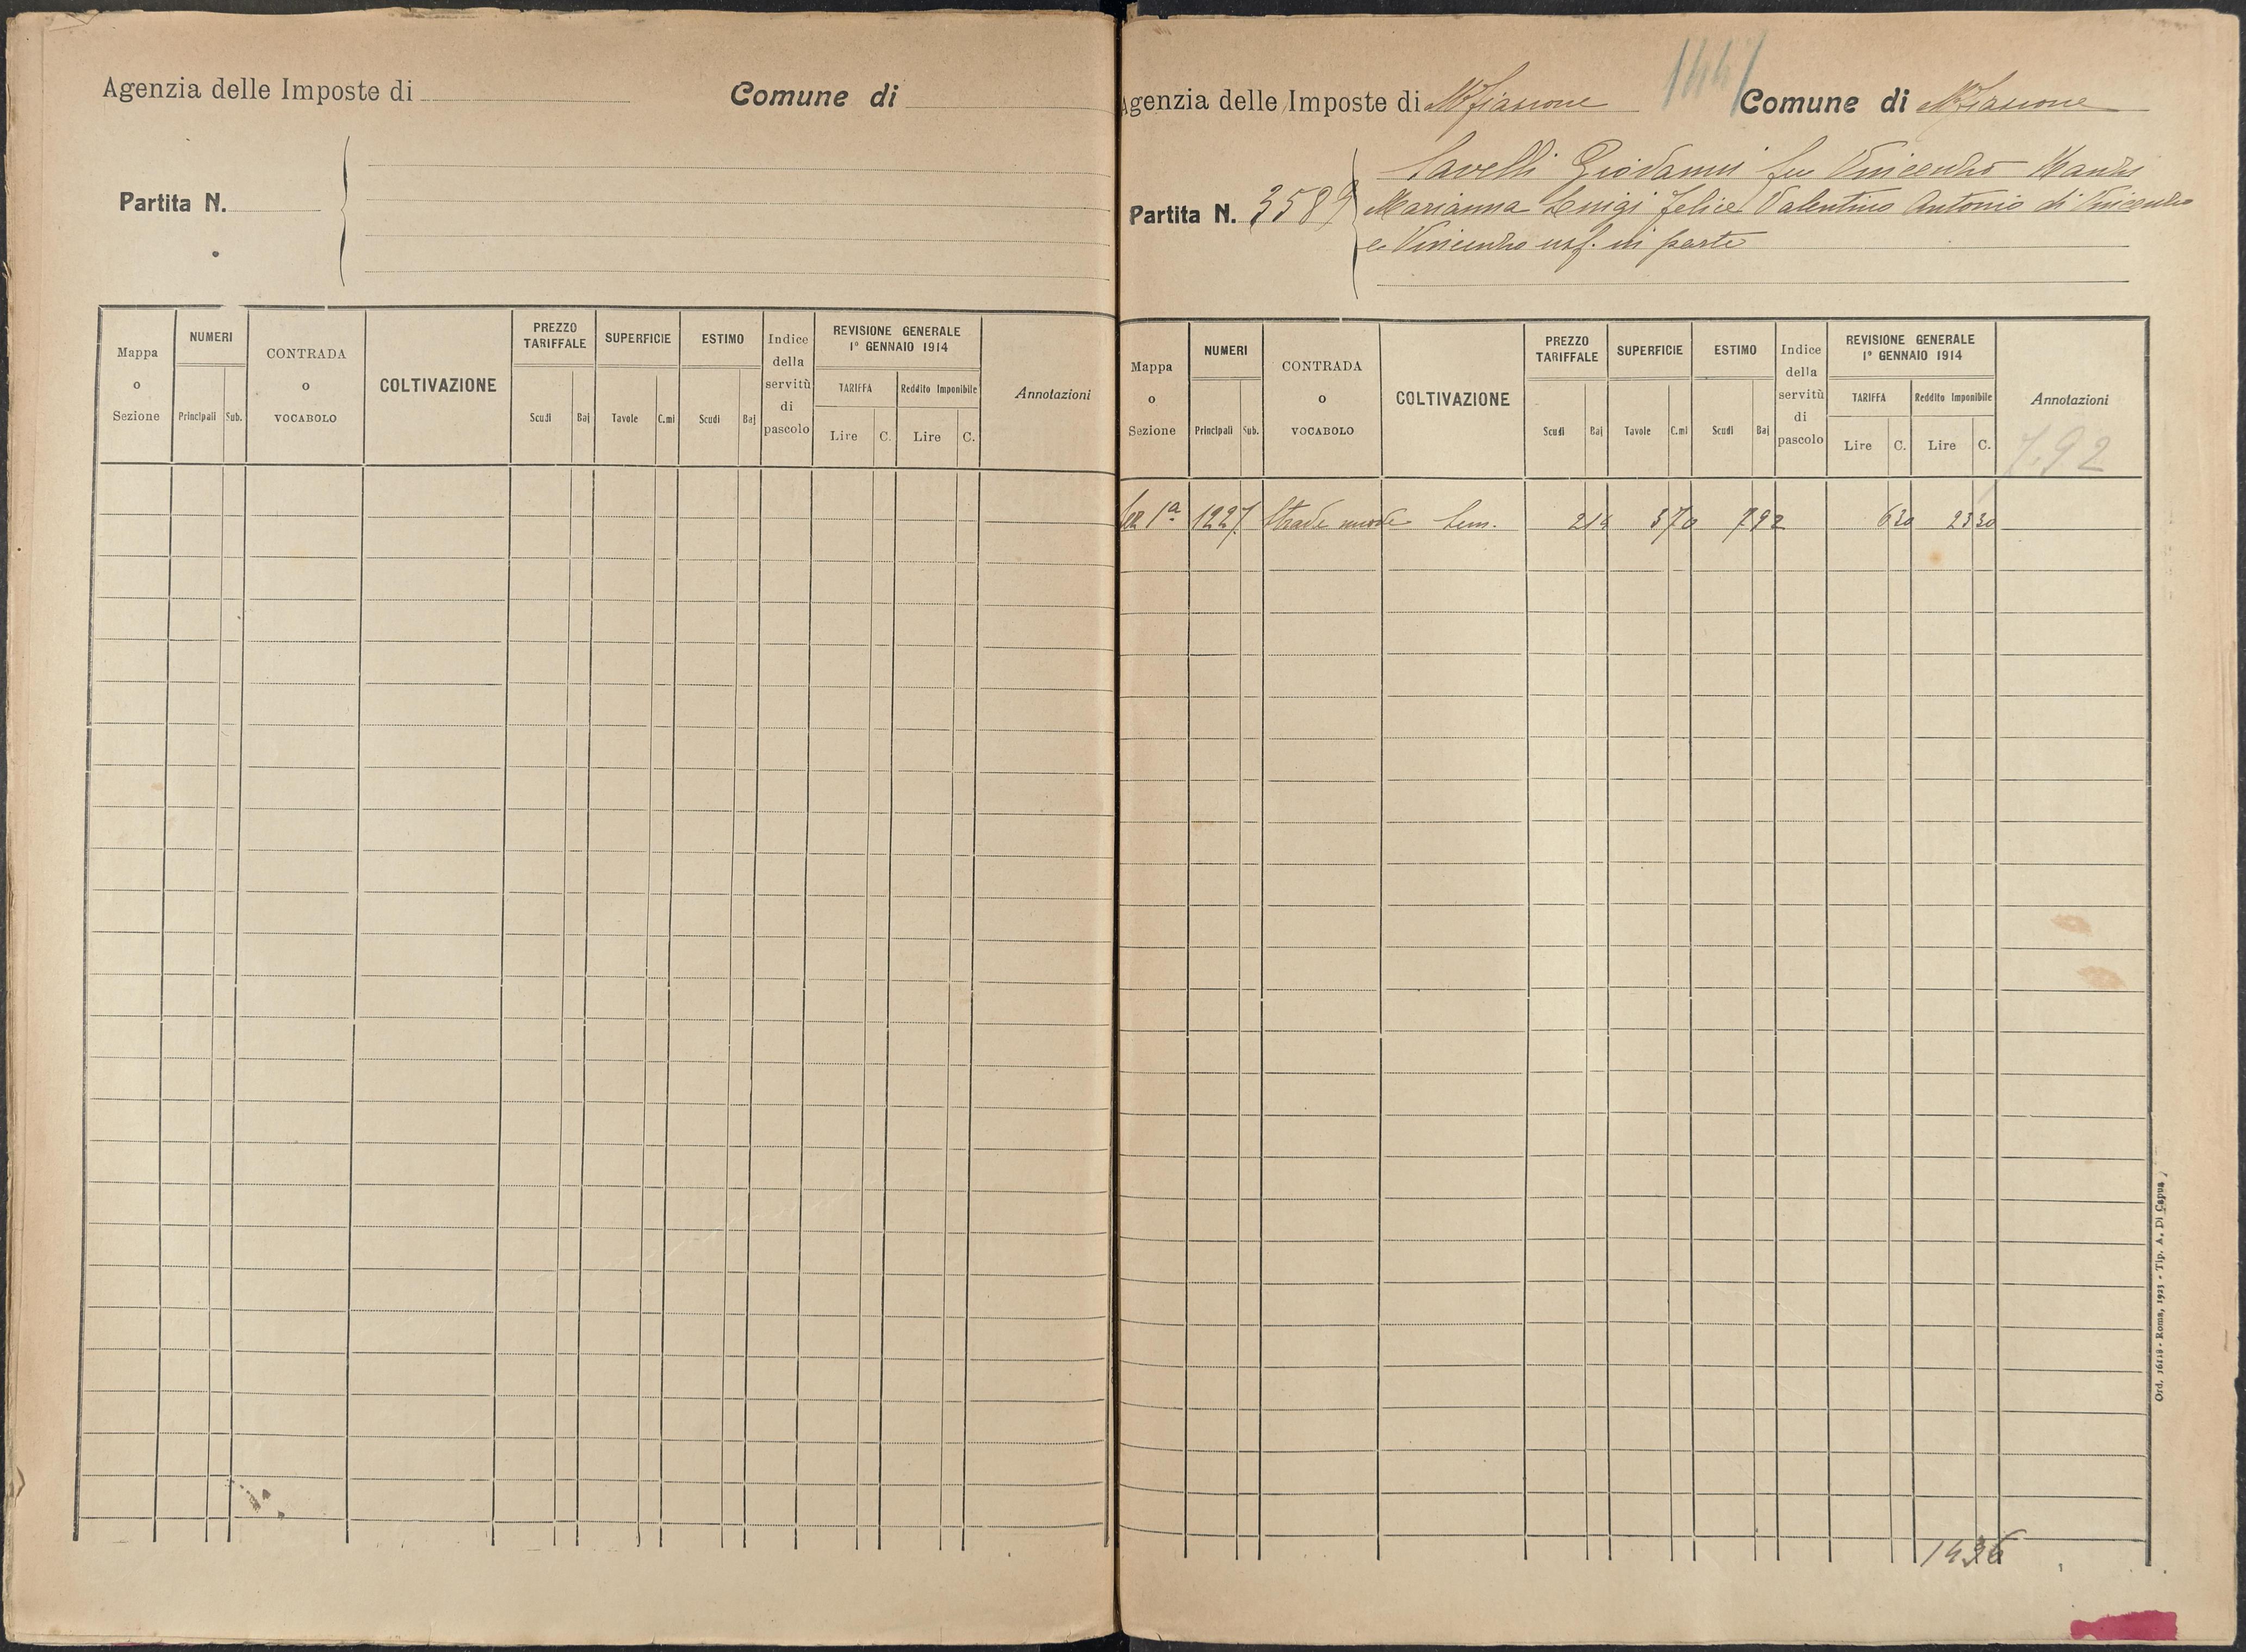 Agenzia delle Imposte di
Comune di
Partita N.
Mappa o Sezione
NUMERI
Principali
Sub.
CONTRADA o VOCABOLO
COLTIVAZIONE
PREZZO TARIFFALE
Scudi
Baj
SUPERFICIE
Tavole
C.mi
ESTIMO
Scudi
Baj
Indice della servitù di pascolo
REVISIONE GENERALE
1° GENNAIO 1914
TARIFFA
Lire
C.
Reddito Imponibile
Lire
C.
Annotazioni
Agenzia delle Imposte di M.Fiascone
Comune di M.Fiascone
Partita N. 3589
Savelli Giovanni fu Vincenzo
Marianna Luigi Felice Valentino Antonio di Vincenzo
e Vincenzo usf. in parte
Mappa o Sezione
NUMERI
Principali
Sub.
CONTRADA o VOCABOLO
COLTIVAZIONE
PREZZO TARIFFALE
Scudi
Baj
SUPERFICIE
Tavole
C.mi
ESTIMO
Scudi
Baj
Indice della servitù di pascolo
REVISIONE GENERALE
1° GENNAIO 1914
TARIFFA
Lire
C.
Reddito Imponibile
Lire
C.
Annotazioni
7.92
1ª 1227 Strade Sem. 214 3 70 7 92 6 30 23 30
1436
Ord. 16118 - Roma, 1923 - Tip. A. Di Capua